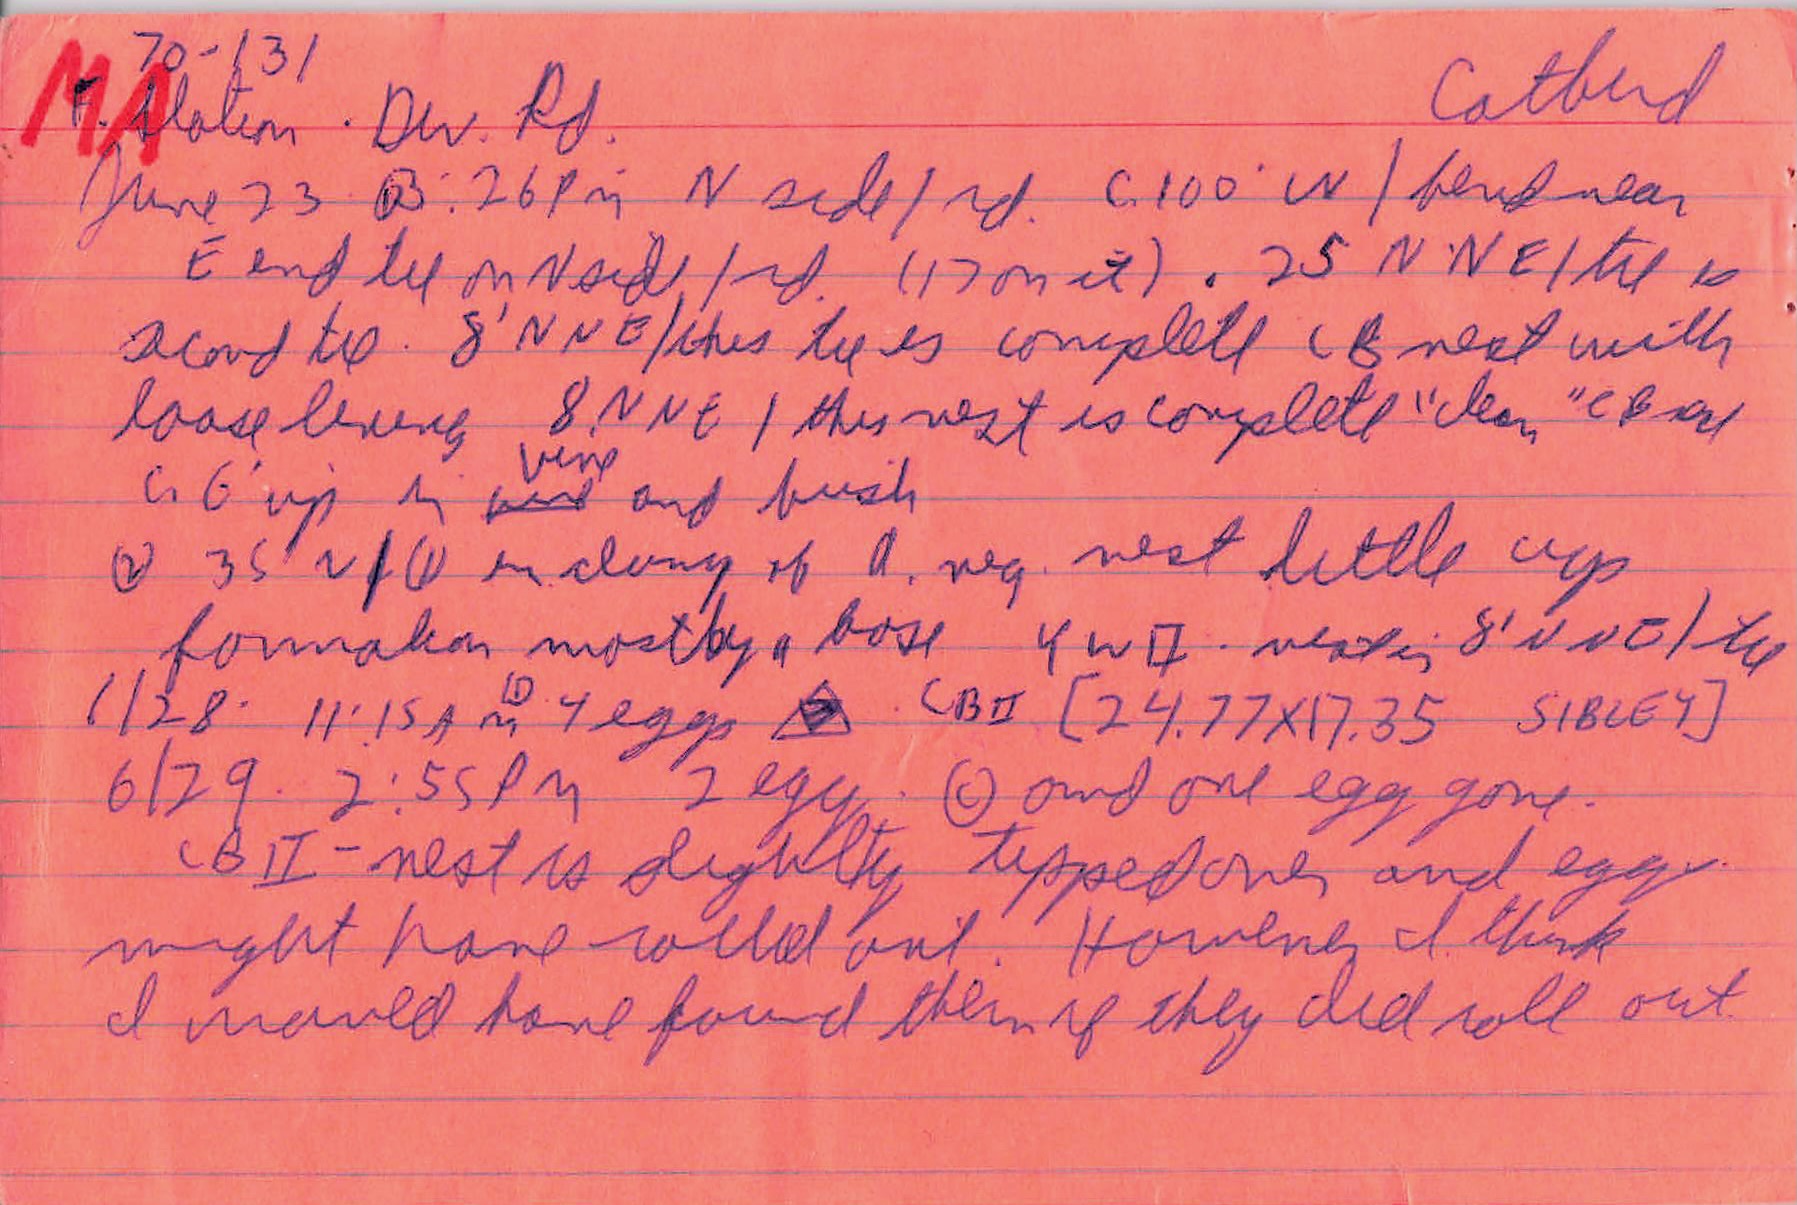 70-131
MA
F. Station. Div. Rd. Catbird
June 23 : 26 Pm N side / rd. C. 100' W / bend near
E end tee on N side / rd. (17 on it). 25 N NE / tee is
second tee. 8' NNE / this tee is complete CB nest with
loose lining 8' NNE / this nest is complete "clean" CB nest
6' up in vine and bush
② 35' N / ① in clump of nest little cup
formation mostly base 4 W II. nest is 8' NNE / tee
6/28. 11:15 Am 4 eggs CB II [24.77X17.35 SIBLEY]
6/29. 2:55 Pm 2 eggs. Ⓒ and one egg gone.
CB II - nest is slightly tipped over and eggs
might have rolled out. However I think
I would have found them if they did roll out